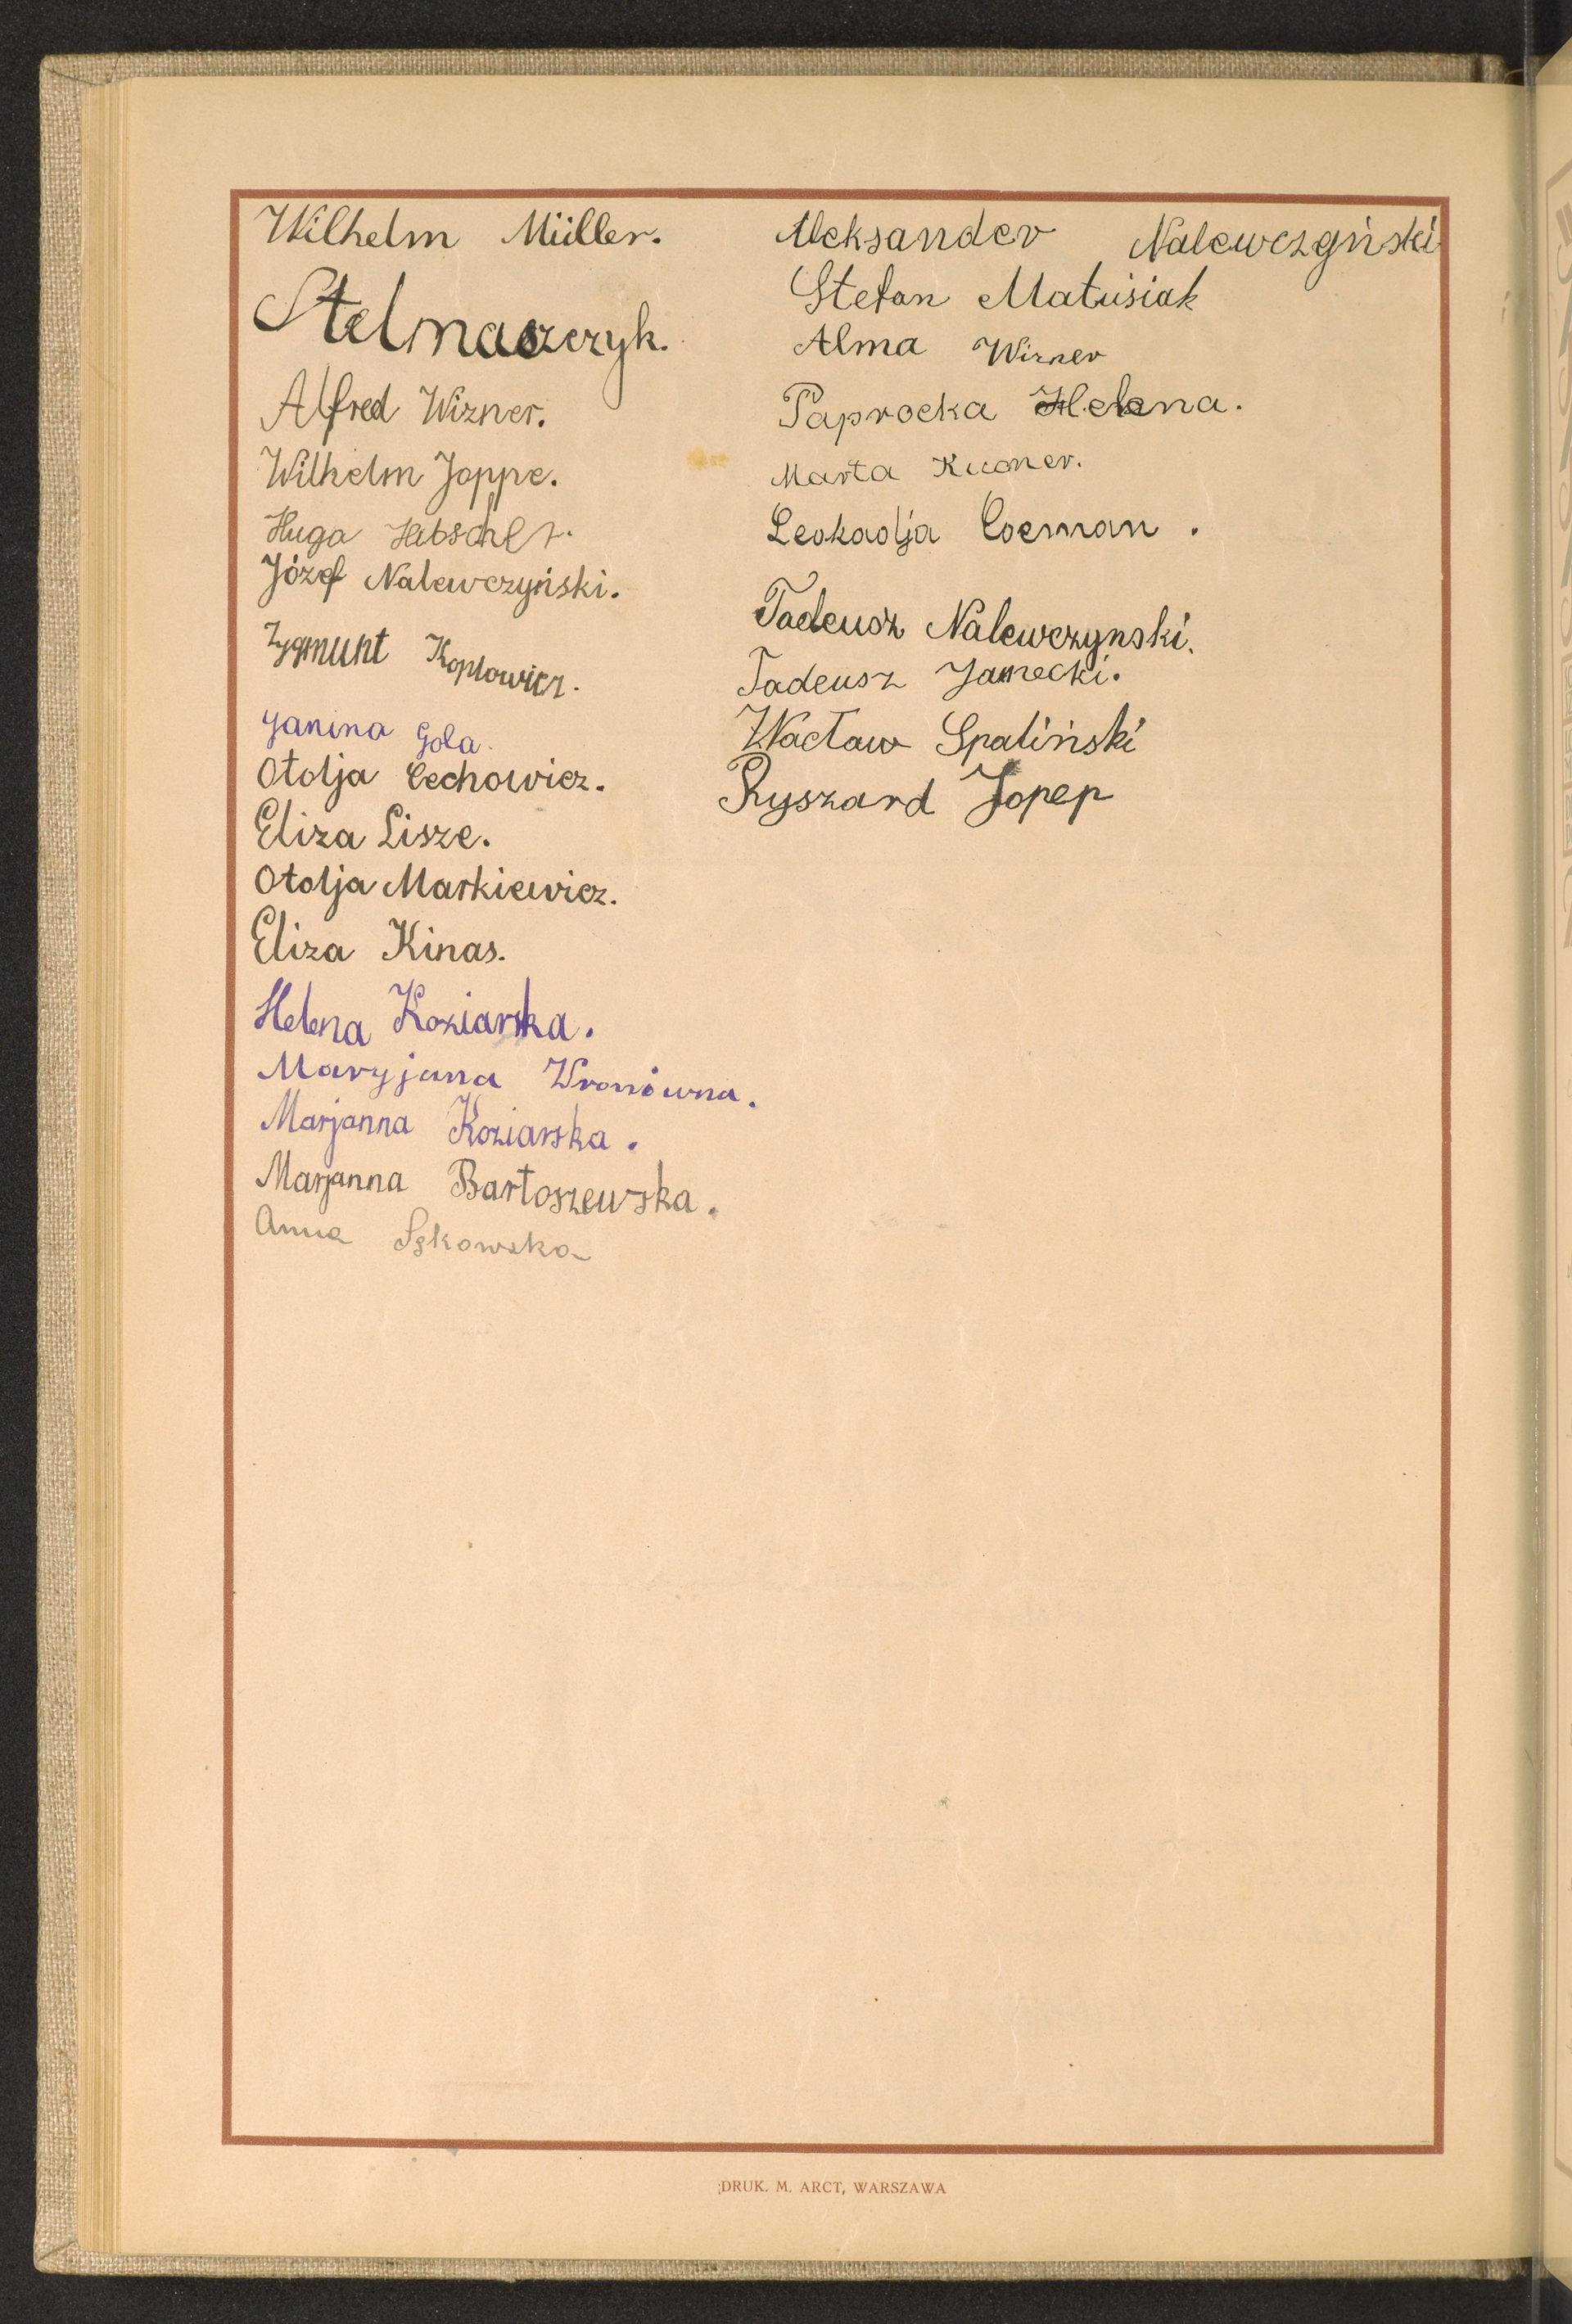 Wilhelm Müller.
Stelmaszczyk.
Alfred Wizner.
Wilhelm Joppe.
Huga
Józef Nalewczyński.
Zygmunt Koplowicz.
Janina Gola.
Otolja Cechowicz.
Eliza Lisze.
Otolja Markiewicz.
Eliza Kinas.
Helena Koziarska.
Maryjana Wronówna.
Marjanna Koziarska.
Marjanna Bartoszewska.
Anna
Aleksander Nalewczyński
Stefan Matusiak
Alma Wizner
Paprocka Helena.
Marta
Leokadja Coeman.
Tadeusz Nalewczynski.
Tadeusz Janecki.
Wacław Spaliński
Ryszard Jopep
DRUK. M. ARCT, WARSZAWA